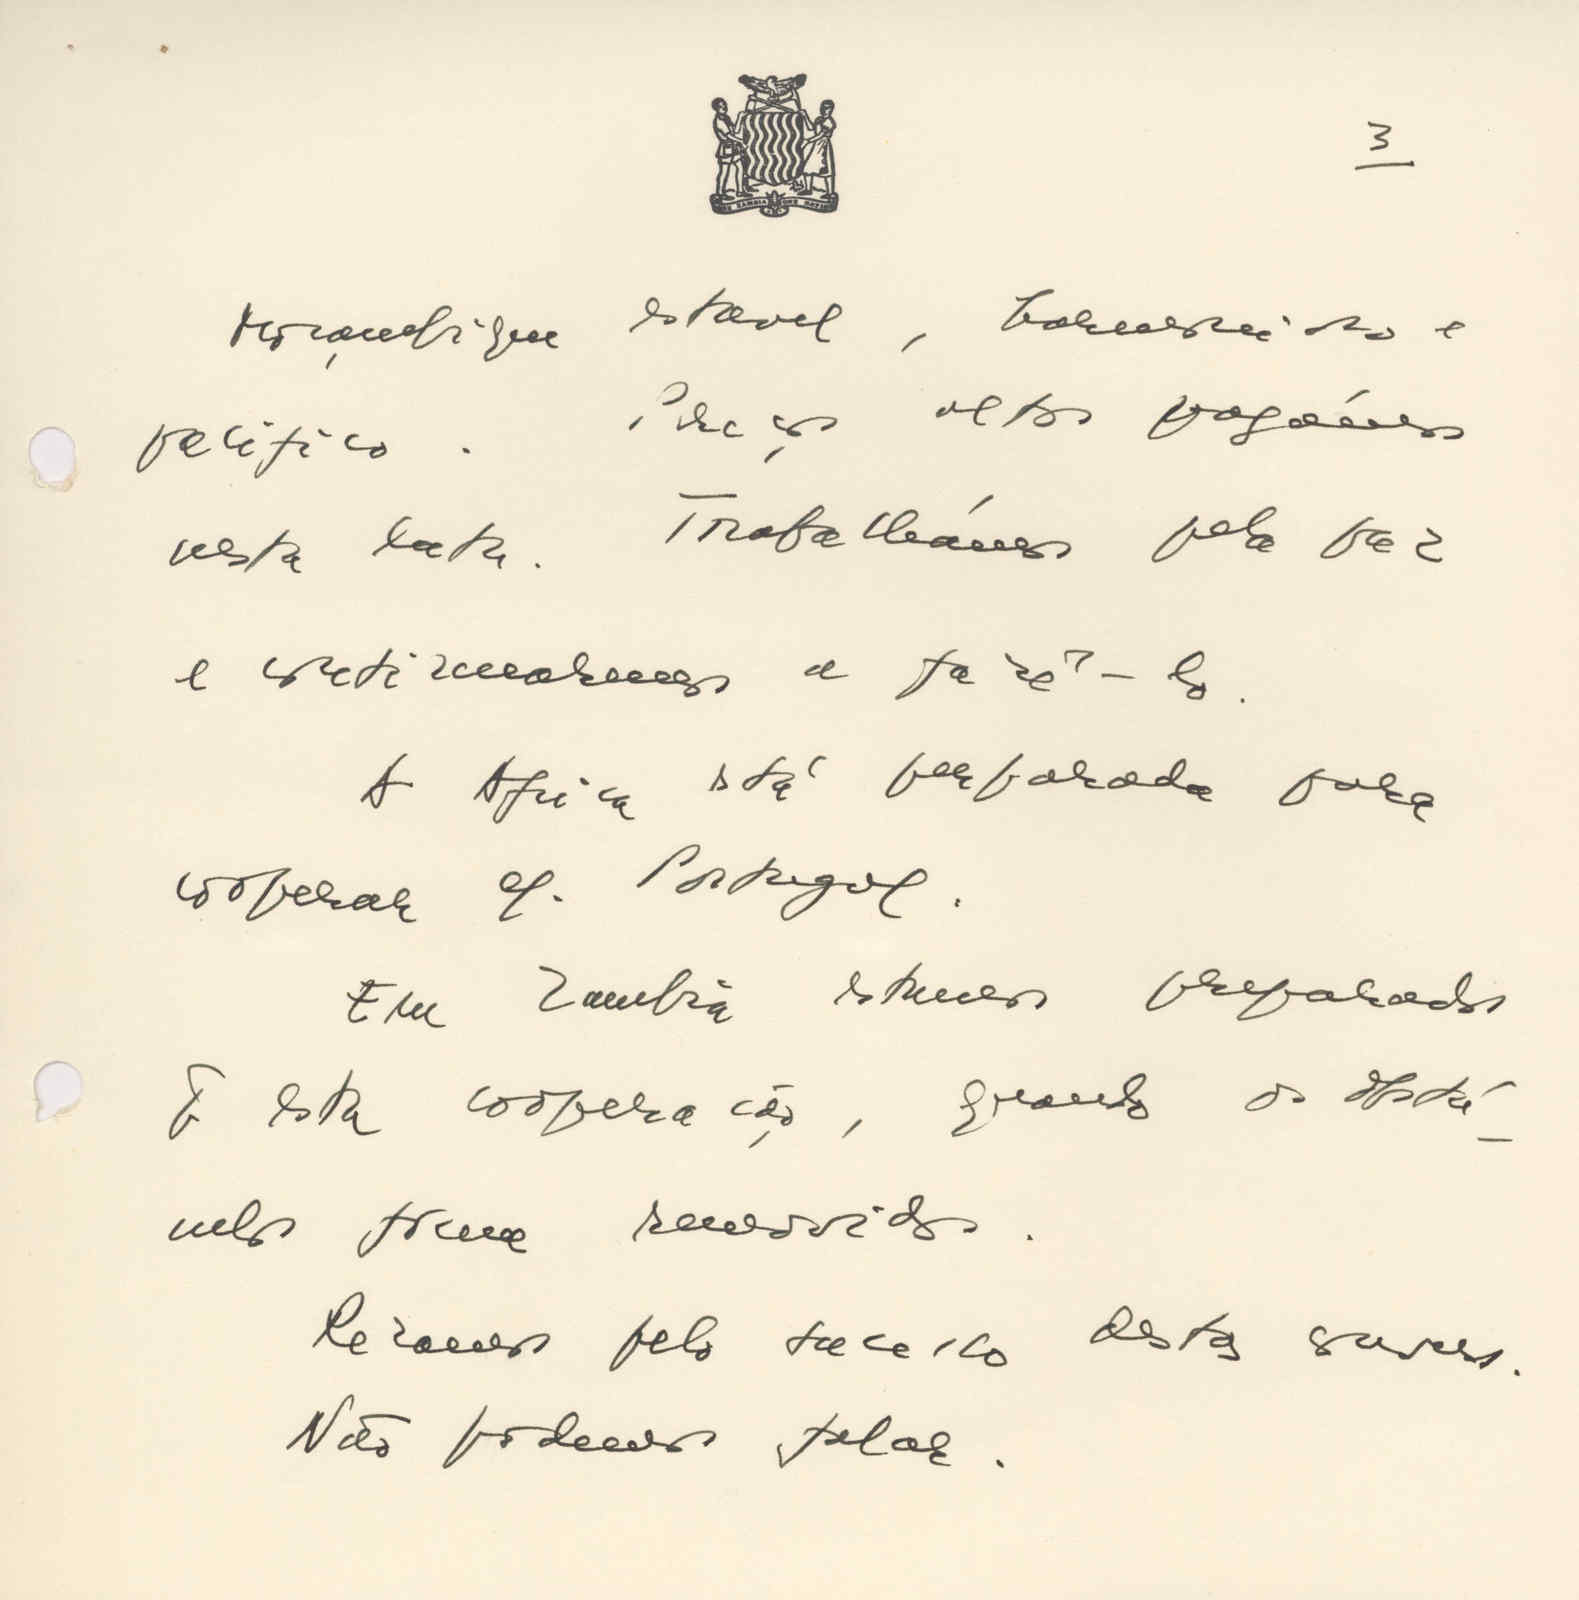 3
Moçambique estavel, harmonioso e
pacifico. Preços altos pagámos
nesta luta. Trabalhámos pela paz
e continuaremos a fazê-lo.
A Africa está preparada para
cooperar c/. Portugal.
Em Zambia estamos preparados
P esta cooperação, quando os obstá-
culos forem removidos.
Rezamos pelo sucesso destas
Não podemos falar.